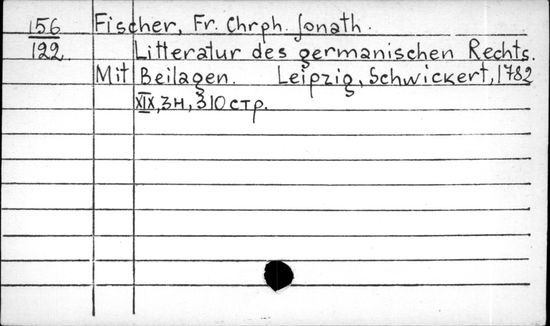 156 Fischer, Fr. Chrph. Jonath.
122. Litteratur des germanischen Rechts.
Mit Beilagen. Leipzig, Schwickert, 1782
XIX, 3н, 310 стр.